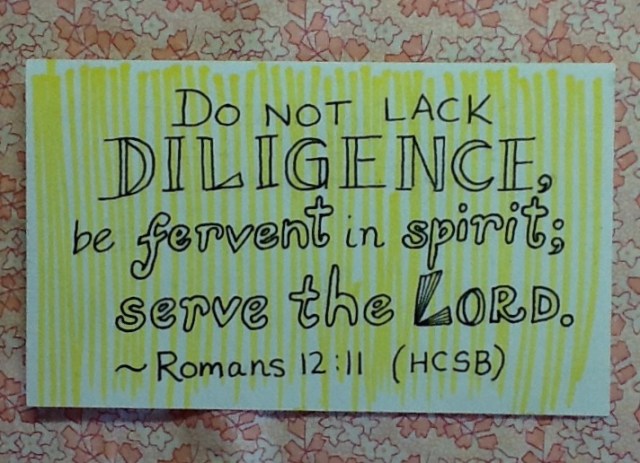 DO NOT LACK
DILIGENCE,
be fervent in spirit;
serve the LORD.
~Romans 12:11 (HCSB)